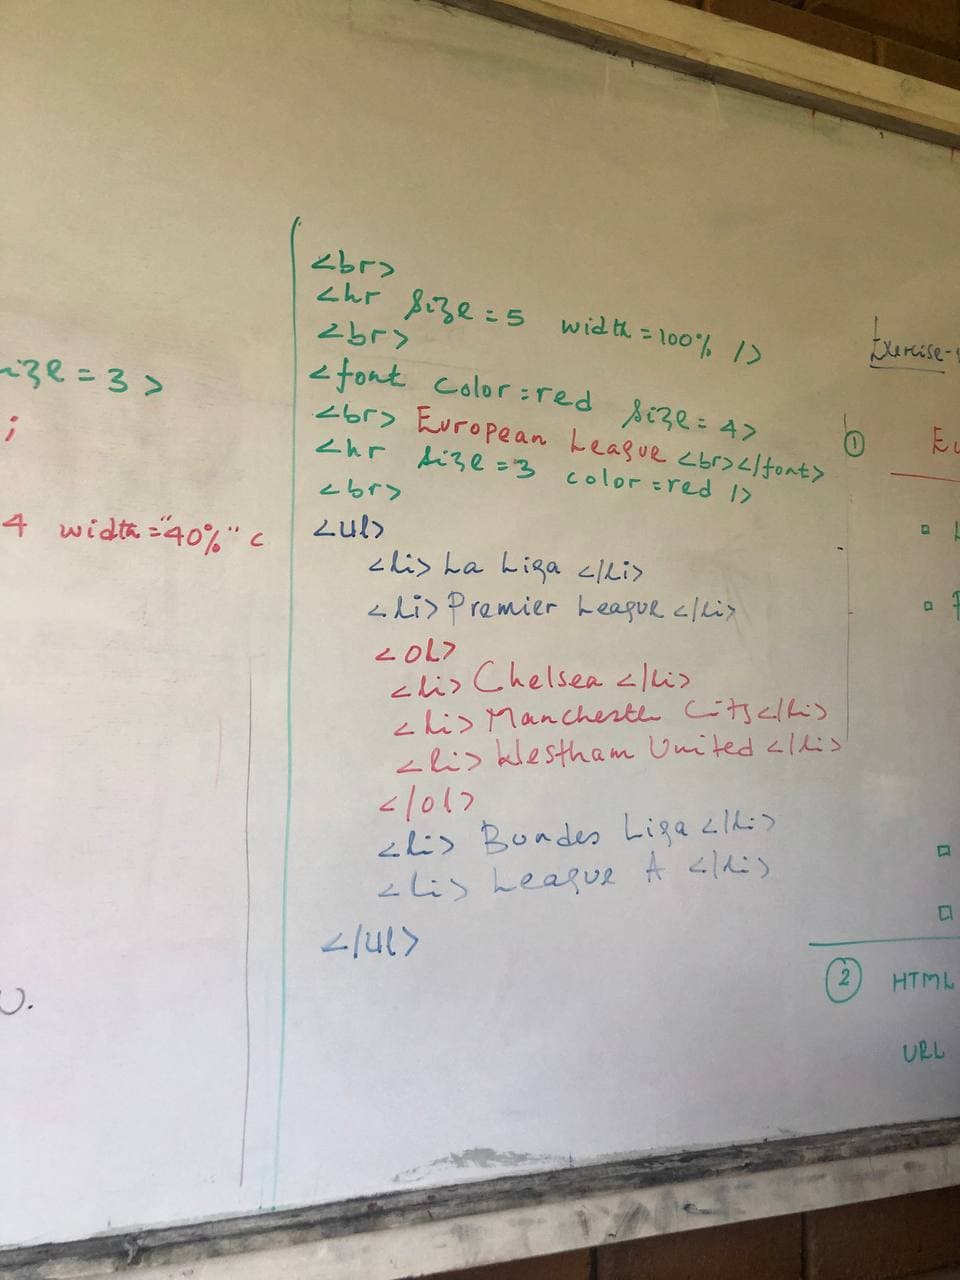 <br>
<hr size=5 width=100% />
<br>
<font color=red size=4>
<br> European League <br></font>
<hr size=3 color=red />
<br>
<ul>
<li> La Liga </li>
<li> Premier League </li>
<ol>
<li> Chelsea </li>
<li> Manchester City </li>
<li> Westham United </li>
</ol>
<li> Bundes Liga </li>
<li> League A </li>
</ul>
=3>
;
4 width="40%" c
U.
Exercise-
1
Eu
2 HTML
URL